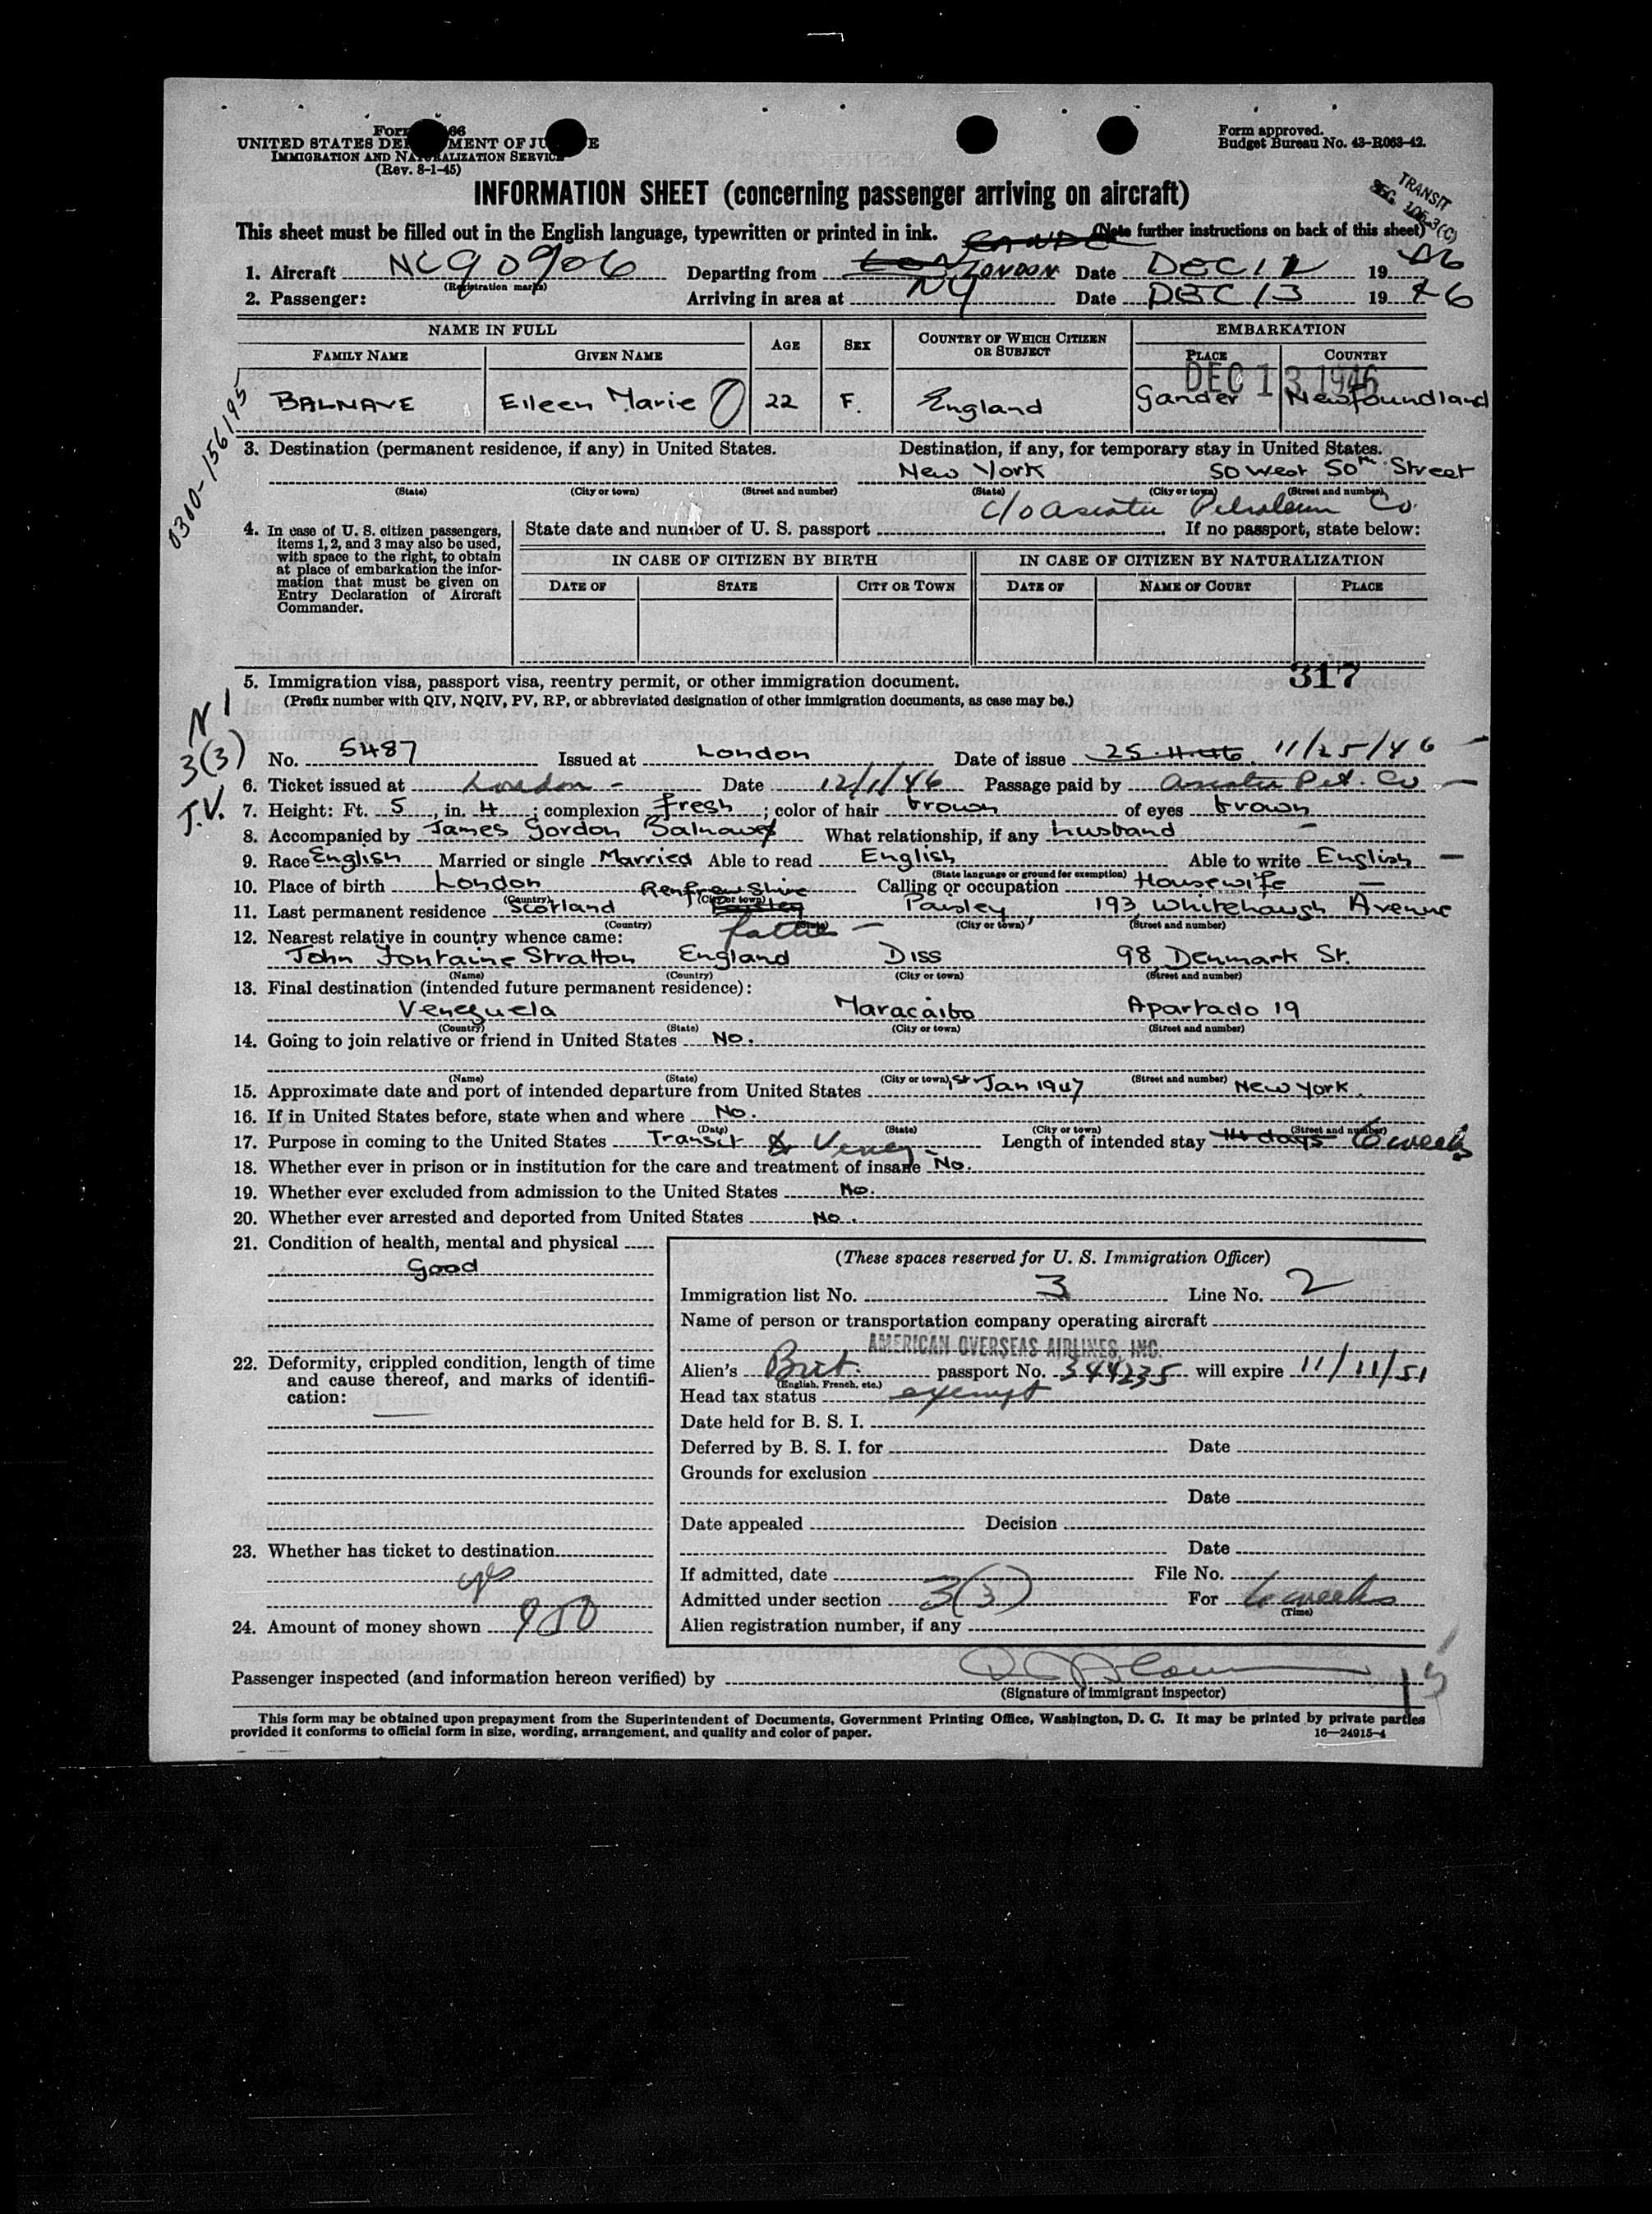 Form 66
UNITED STATES DEPARTMENT OF JUSTICE
IMMIGRATION AND NATURALIZATION SERVICE
(Rev. 8-1-45)
Form approved.
Budget Bureau No. 43-R063-42.
TRANSIT
SEC. 106.3(C)
INFORMATION SHEET (concerning passenger arriving on aircraft)
This sheet must be filled out in the English language, typewritten or printed in ink. (Note further instructions on back of this sheet)
1. Aircraft NC90906 Departing from LONDON Date DEC 12 1946
(Registration marks)
2. Passenger: Arriving in area at NY Date DEC 13 1946
NAME IN FULL AGE SEX COUNTRY OF WHICH CITIZEN OR SUBJECT EMBARKATION
FAMILY NAME GIVEN NAME PLACE COUNTRY
DEC 13 1946
BALNAVE Eileen Marie 22 F. England Gander Newfoundland
0300-156195
3. Destination (permanent residence, if any) in United States. Destination, if any, for temporary stay in United States.
New York 50 West 50th Street
(State) (City or town) (Street and number) (State) (City or town) (Street and number)
c/o Asiatic Petroleum Co.
4. In case of U. S. citizen passengers, items 1, 2, and 3 may also be used, with space to the right, to obtain at place of embarkation the information that must be given on Entry Declaration of Aircraft Commander.
State date and number of U. S. passport If no passport, state below:
IN CASE OF CITIZEN BY BIRTH IN CASE OF CITIZEN BY NATURALIZATION
DATE OF STATE CITY OR TOWN DATE OF NAME OF COURT PLACE
317
5. Immigration visa, passport visa, reentry permit, or other immigration document.
(Prefix number with QIV, NQIV, PV, RP, or abbreviated designation of other immigration documents, as case may be.)
N 1
3(3)
T.V.
No. 5487 Issued at London Date of issue 25.11.46. 11/25/46
6. Ticket issued at London Date 12/1/46 Passage paid by Asiatic Pet. Co
7. Height: Ft. 5, in. 4; complexion fresh; color of hair brown of eyes brown
8. Accompanied by James Gordon Balnave What relationship, if any husband
9. Race English Married or single Married Able to read English Able to write English
(State language or ground for exemption)
10. Place of birth London Renfrewshire Calling or occupation Housewife
(Country) (City or town)
11. Last permanent residence Scotland Paisley Paisley, 193, Whitehaugh Avenue
(Country) (State) (City or town) (Street and number)
12. Nearest relative in country whence came: father
John Fontaine Stratton England Diss 98 Denmark St.
(Name) (Country) (City or town) (Street and number)
13. Final destination (intended future permanent residence):
Venezuela Maracaibo Apartado 19
(Country) (State) (City or town) (Street and number)
14. Going to join relative or friend in United States No.
(Name) (State) (City or town) (Street and number)
15. Approximate date and port of intended departure from United States 1st Jan 1947 New York.
16. If in United States before, state when and where No.
(Date) (State) (City or town) (Street and number)
17. Purpose in coming to the United States Transit to Venez. Length of intended stay 14 days 6 weeks
18. Whether ever in prison or in institution for the care and treatment of insane No.
19. Whether ever excluded from admission to the United States No.
20. Whether ever arrested and deported from United States No.
21. Condition of health, mental and physical
Good
22. Deformity, crippled condition, length of time and cause thereof, and marks of identification:
23. Whether has ticket to destination
yes
24. Amount of money shown
(These spaces reserved for U. S. Immigration Officer)
Immigration list No. 3 Line No. 2
Name of person or transportation company operating aircraft
AMERICAN OVERSEAS AIRLINES, INC.
Alien's Brit. passport No. 344235 will expire 11/11/51
(English, French, etc.)
Head tax status exempt
Date held for B. S. I.
Deferred by B. S. I. for Date
Grounds for exclusion
Date
Date appealed Decision
Date
If admitted, date File No.
Admitted under section 3(3) For 6 weeks
(Time)
Alien registration number, if any
Passenger inspected (and information hereon verified) by
(Signature of immigrant inspector)
This form may be obtained upon prepayment from the Superintendent of Documents, Government Printing Office, Washington, D. C. It may be printed by private parties
provided it conforms to official form in size, wording, arrangement, and quality and color of paper. 16—24915-4